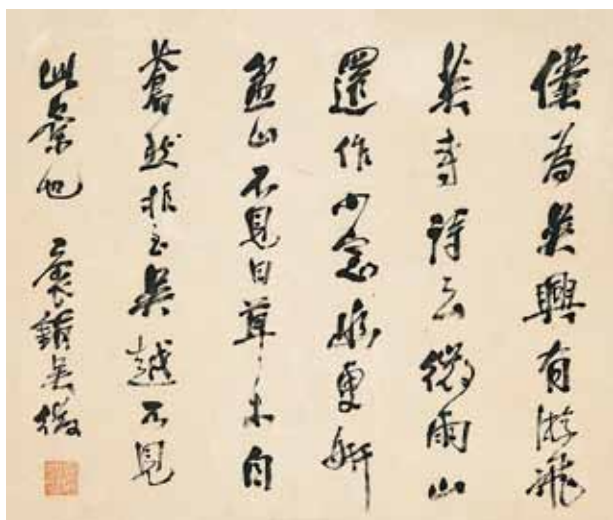 僕為吳興有游飛
英寺詩云微雨止
還作小窗幽更妍
盆山不見日草木自
蒼然非至吳越不見
此景也 褱鋗吳徵